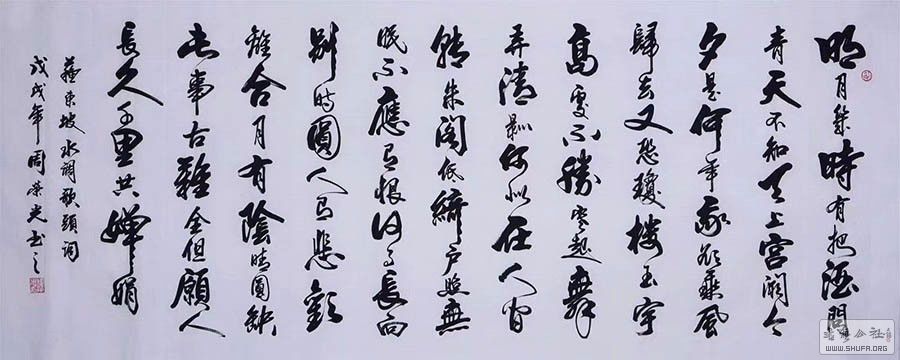 明月幾時有把酒問
青天不知天上宮闕今
夕是何年我欲乘風
歸去又恐瓊樓玉宇
高處不勝寒起舞
弄清影何似在人間
轉朱閣低綺戶照無
眠不應有恨何事長向
別時圓人有悲歡
離合月有陰晴圓缺
此事古難全但願人
長久千里共嬋娟
蘇東坡水調歌頭詞
戊戌年周榮光書之
WWW.SHUFA.ORG